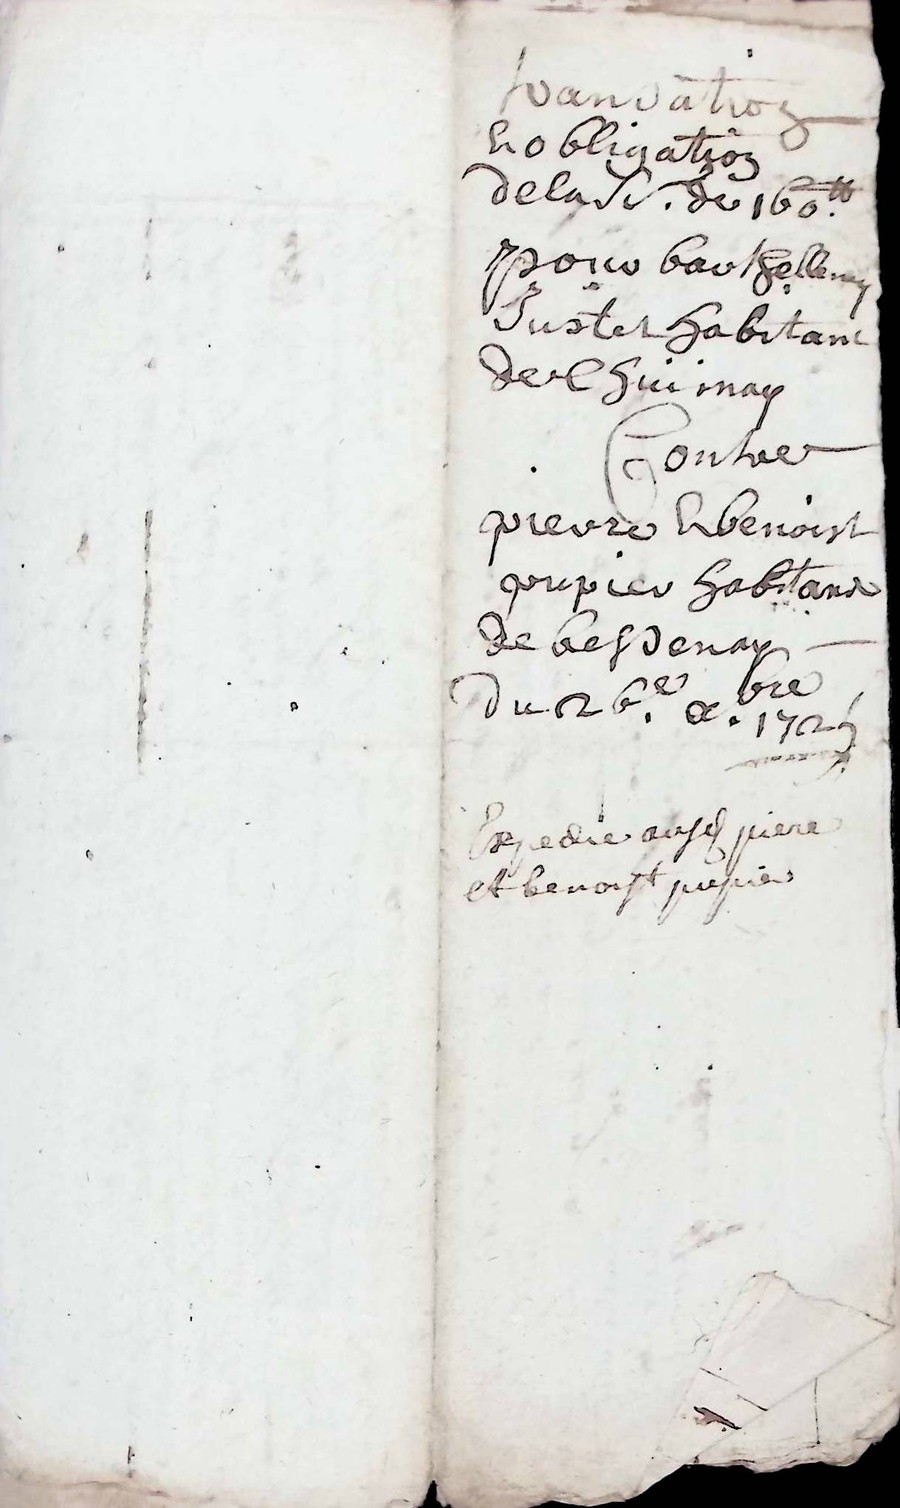 Transation
& obligation
de la so. de 160.tt
pour barthellemy
Juster habitant
de Chuimay
Contre
pierre & benoist
pupier habitans
de bessenay
du 26.e x.bre 1725
Expedie ausd pierre
et benoist pupier